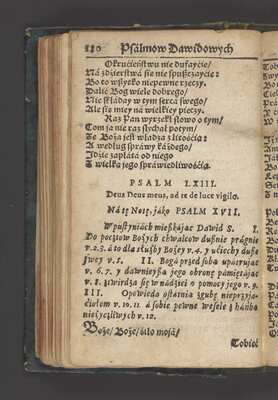 110 Psálmow Dawidowych
Okrućieństwu nie dufayćie/
Ná zdzierstwá sie nie spuszczayćie:
Bo to wszytko niepewne rzeczy.
Dalić Bog wiele dobrego/
Nie składay w tym sercá swego/
Ale sie miey ná wielkiey pieczy.
Raz Pan wyrzekł słowo o tym/
Com ja nie raz słychał potym/
Że Boża jest władza z litośćią:
A według spráwy káżdego/
Jdzie zapłátá od niego
Z wielką jego spráwiedliwośćią.
PSALM LXIII.
Deus Deus meus, ad te de luce vigilo.
Ná tę Notę, jáko PSALM XVII.
W pustyniách mieszkájąc Dawid S. I.
Do pocztow Bożych chwalcow dusznie prágnie
v. 2. 3. á to dla służby Bożey v. 4. y ućiechy du-
szney v. 5. II. Bogá przed sobą upátrując
v. 6. 7. y dawnieyszą jego obronę pámiętájąc
v. 8. stwirdza się w nádźiei o pomocy jego v. 9.
III. Opowieda ostátnią zgubę nieprzyja-
ćiołom v. 10. 11. á sobie pewne wesele z háńbą
nieżyczliwych v. 12.
Boże/ Boże/ śiło mojá/
Tobieć